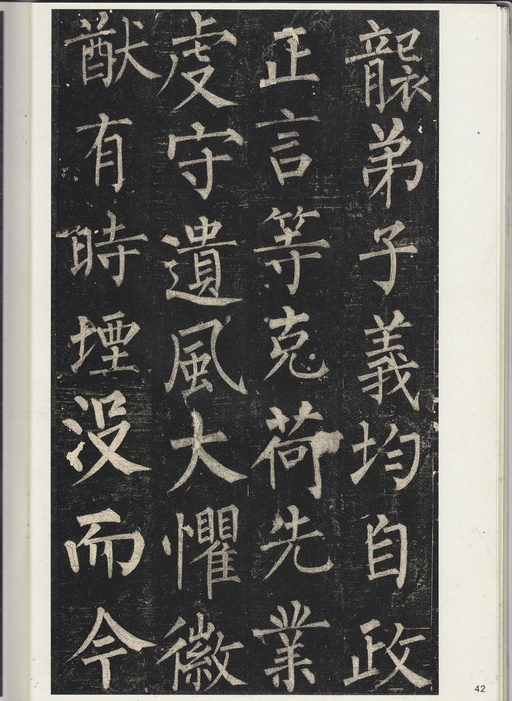 襲弟子義均自政
正言等克荷先業
虔守遺風大懼徽
猷有時堙没而今
42